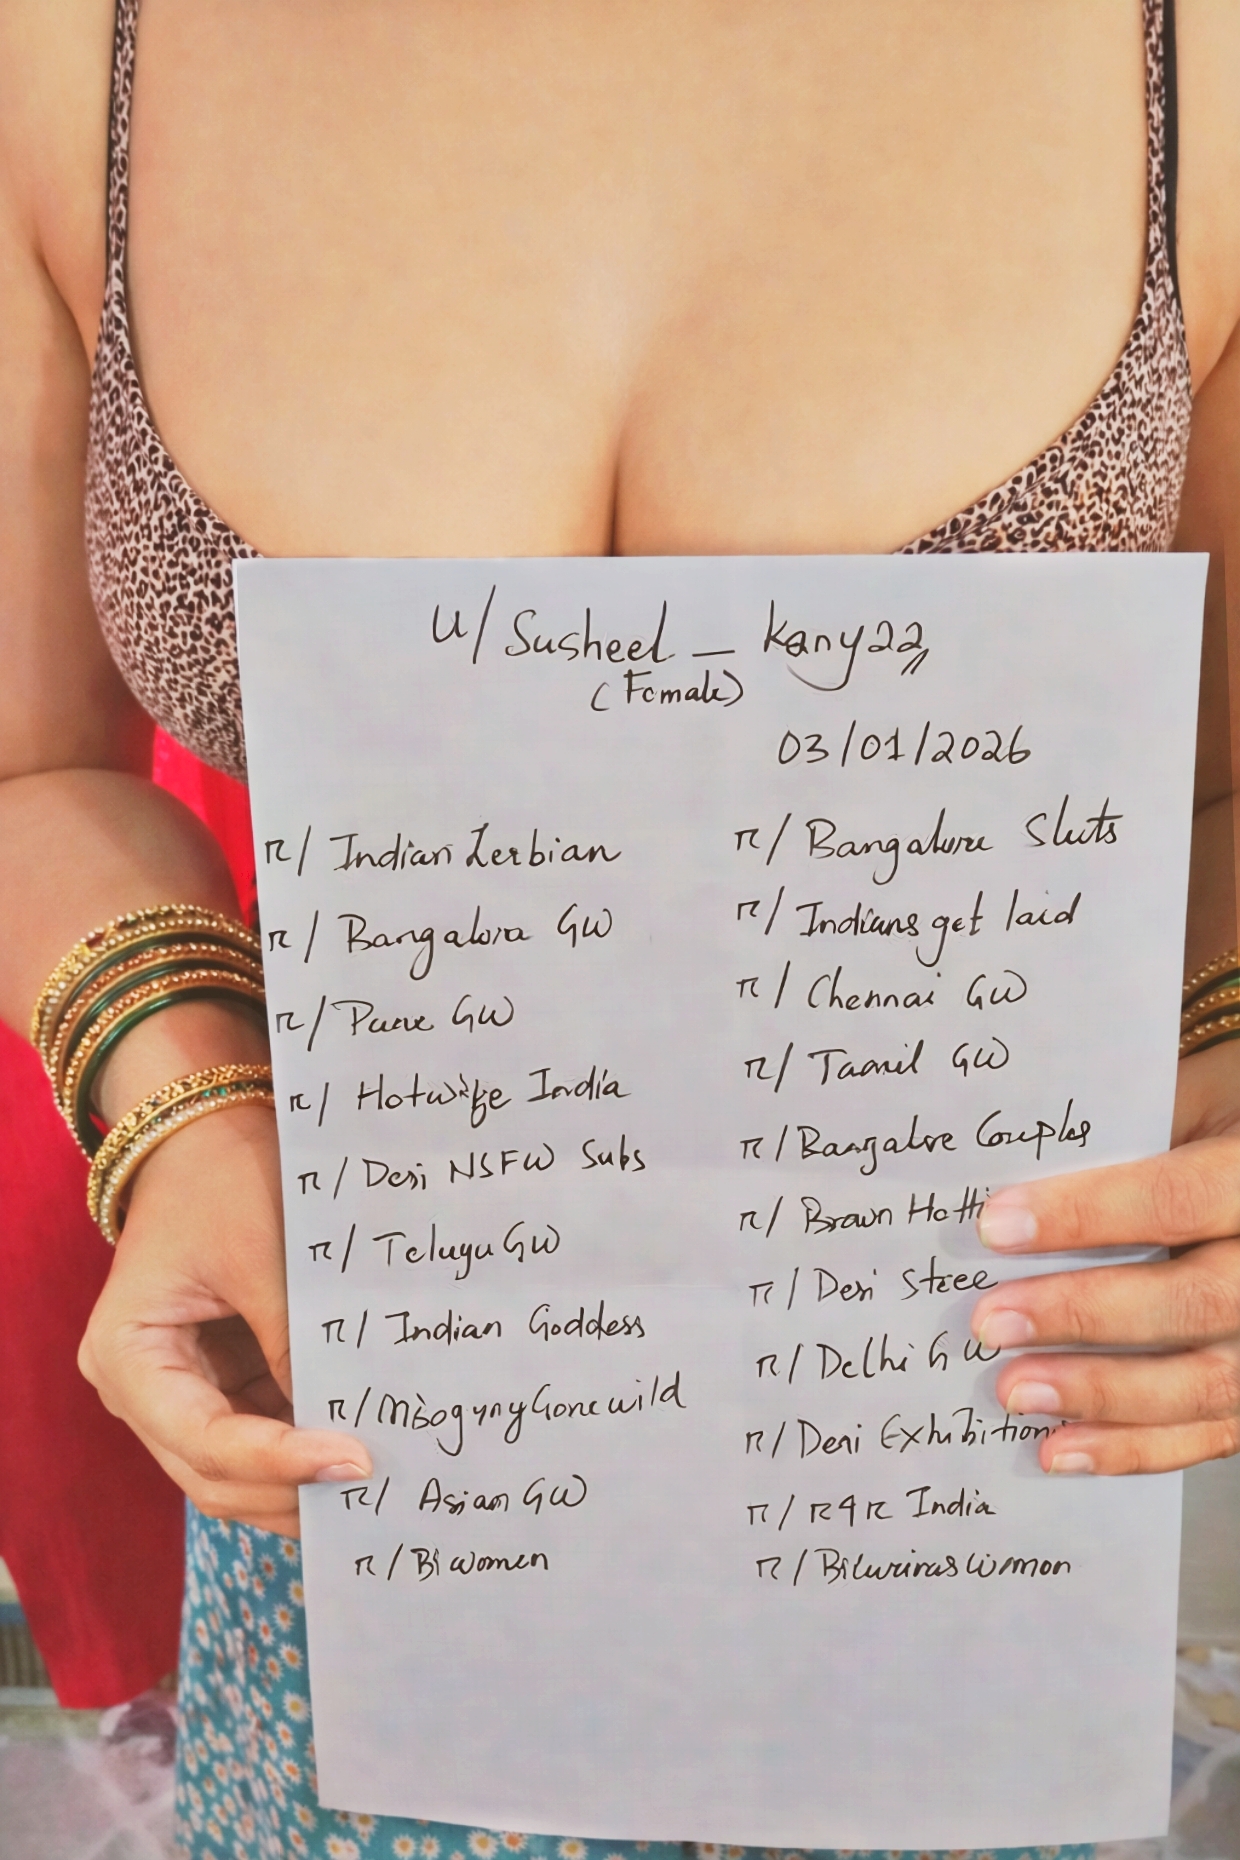 u/Susheel_kanya22
(Female)
03/01/2026
r/Indian Lesbian
r/Bangalore GW
r/Pune GW
r/Hotwife India
r/Desi NSFW Subs
r/TeluguGW
r/Indian Goddess
r/MisogynyGonewild
r/Asian GW
r/Bi women
r/Bangalore Sluts
r/Indians get laid
r/Chennai GW
r/Tamil GW
r/Bangalore Couples
r/Brown Hotti
r/Desi Stree
r/Delhi GW
r/Desi Exhibition
r/R4R India
r/